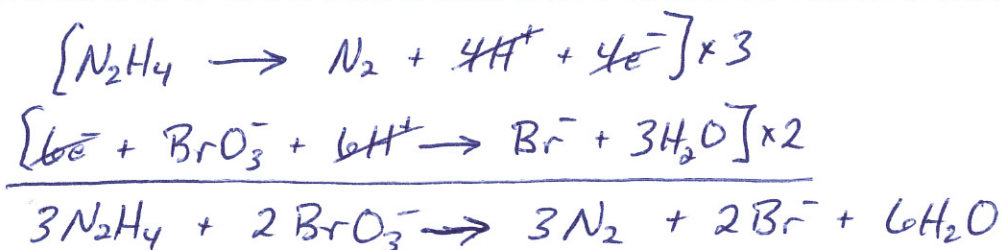 [N₂H₄ → N₂ + 4H⁺ + 4e⁻] × 3
[6e⁻ + BrO₃⁻ + 6H⁺ → Br⁻ + 3H₂O] × 2
3N₂H₄ + 2BrO₃⁻ → 3N₂ + 2Br⁻ + 6H₂O